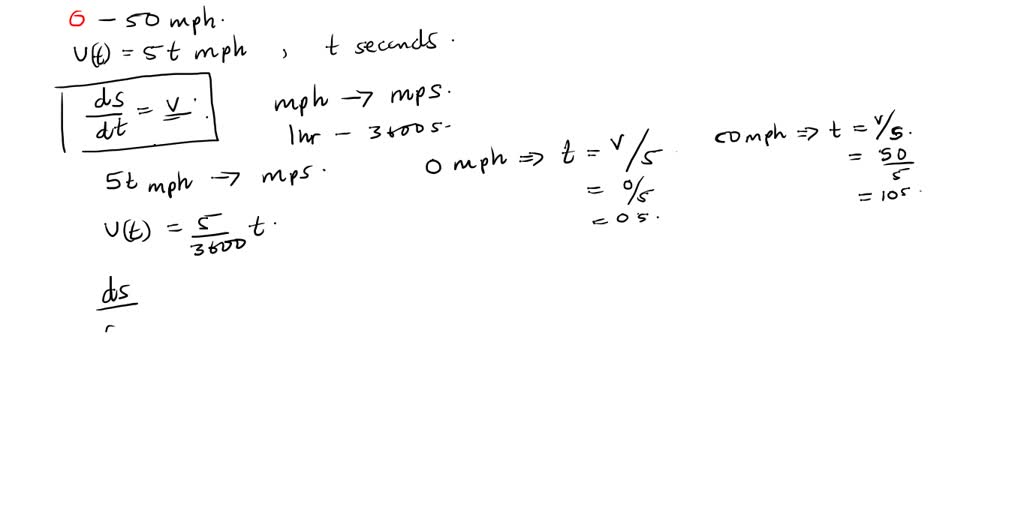 0 - 50 mph.
v(t) = 5t mph , t seconds.
ds/dt = v.
mph → mps.
1hr - 3600s.
5t mph → mps.
v(t) = 5/3600 t.
0 mph ⇒ t = v/5
= 0/5
= 0s.
50 mph ⇒ t = v/5.
= 50/5
= 10s.
ds